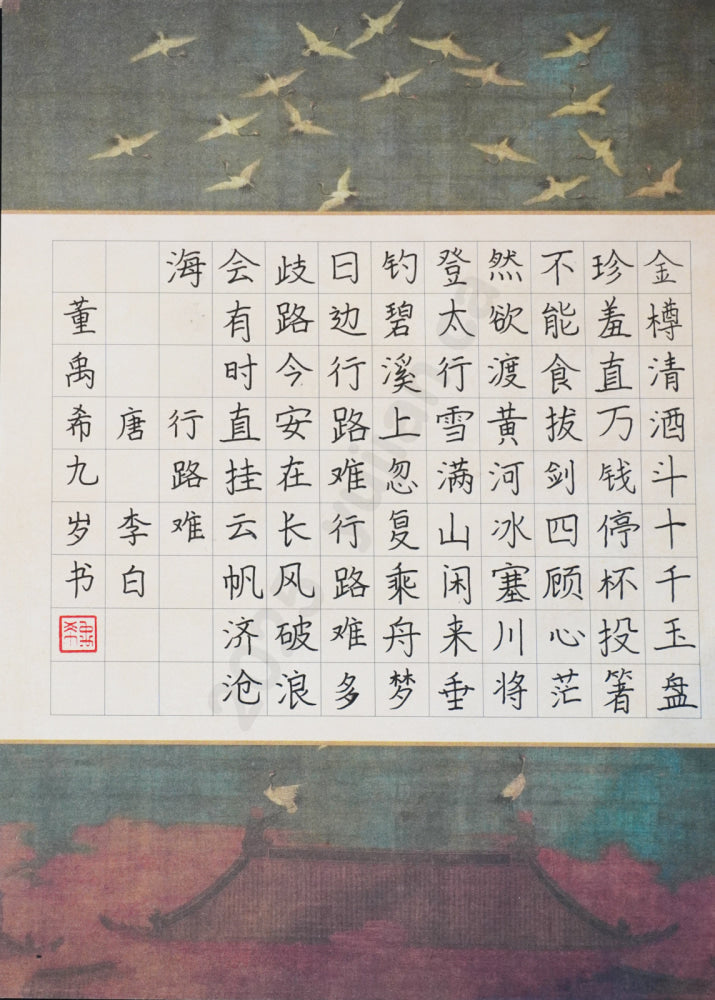 金樽清酒斗十千玉盘
珍羞直万钱停杯投箸
不能食拔剑四顾心茫
然欲渡黄河冰塞川将
登太行雪满山闲来垂
钓碧溪上忽复乘舟梦
日边行路难行路难多
歧路今安在长风破浪
会有时直挂云帆济沧
海 行路难
唐 李白
董禹希九岁书